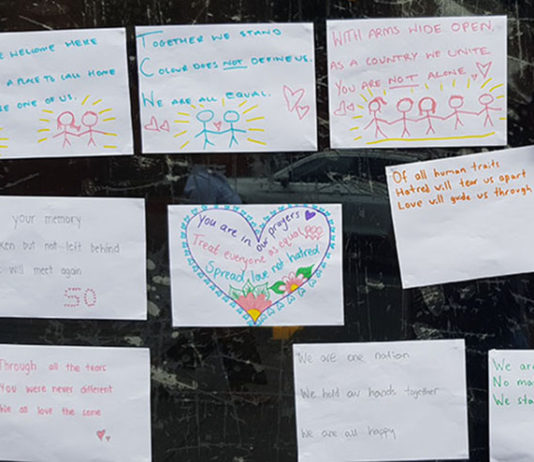 WELCOME HERE
A PLACE TO CALL HOME
ONE OF US.
TOGETHER WE STAND
COLOUR DOES NOT DEFINE US.
WE ARE ALL EQUAL.
WITH ARMS WIDE OPEN,
AS A COUNTRY WE UNITE
YOU ARE NOT ALONE
your memory
but not left behind
will meet again
50
you are in our prayers
Treat everyone as equal
Spread love not hatred
Of all human traits
Hatred will tear us apart
Love will guide us through
Through all the tears
You were never different
We all love the same
We are one nation
We hold our hands together
We are all happy
We
No
We